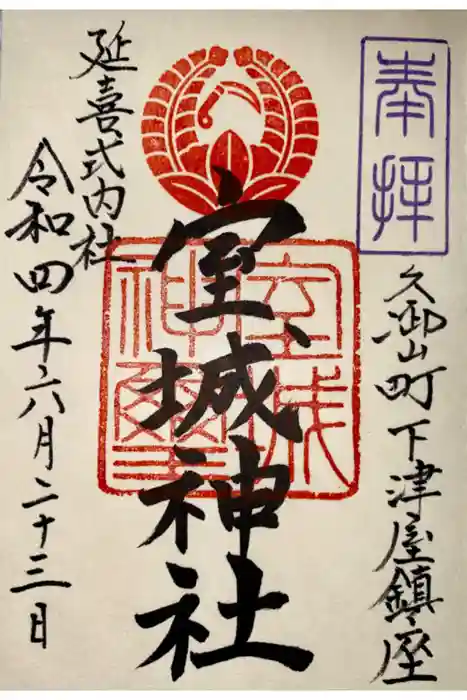 奉拝
久御山町下津屋鎮座
室城神社
室城神璽
延喜式内社
令和四年六月二十三日